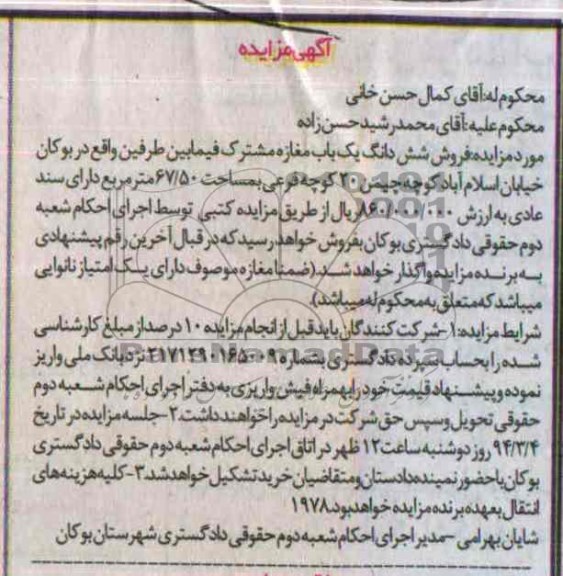 آگهی مزایده
محکوم له: آقای کمال حسن خانی
محکوم علیه: آقای محمدرشید حسن زاده
مورد مزایده: فروش شش دانگ یک باب مغازه مشترک فیمابین طرفین واقع در بوکان
خیابان اسلام آباد کوچه چیمن ۲۰ کوچه فرعی بمساحت ۶۷/۵۰ مترمربع دارای سند
عادی به ارزش ۸۶۰/۰۰۰/۰۰۰ ریال از طریق مزایده کتبی توسط اجرای احکام شعبه
دوم حقوقی دادگستری بوکان بفروش خواهد رسید که در قبال آخرین رقم پیشنهادی
به برنده مزایده واگذار خواهد شد. (ضمنا مغازه موصوف دارای یک امتیاز نانوایی
میباشد که متعلق به محکوم له میباشد).
شرایط مزایده: ۱- شرکت کنندگان باید قبل از انجام مزایده ۱۰ درصد از مبلغ کارشناسی
شده را بحساب سپرده دادگستری بشماره ۲۱۷۱۲۹۰۱۶۵۰۰۹ نزد بانک ملی واریز
نموده و پیشنهاد قیمت خود را بهمراه فیش واریزی به دفتر اجرای احکام شعبه دوم
حقوقی تحویل و سپس حق شرکت در مزایده را خواهند داشت. ۲- جلسه مزایده در تاریخ
۹۴/۳/۴ روز دوشنبه ساعت ۱۲ ظهر در اتاق اجرای احکام شعبه دوم حقوقی دادگستری
بوکان با حضور نمینده دادستان و متقاضیان خرید تشکیل خواهد شد. ۳- کلیه هزینه های
انتقال بعهده برنده مزایده خواهد بود. ۱۹۷۸
شایان بهرامی - مدیر اجرای احکام شعبه دوم حقوقی دادگستری شهرستان بوکان